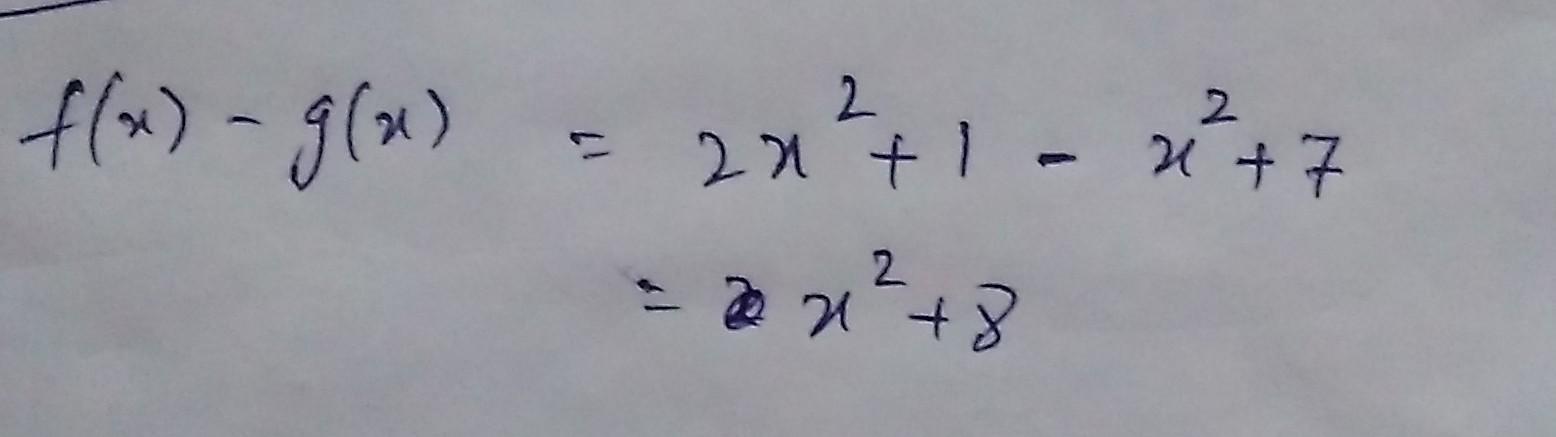 f(x) - g(x) = 2x² + 1 - x² + 7
= x² + 8